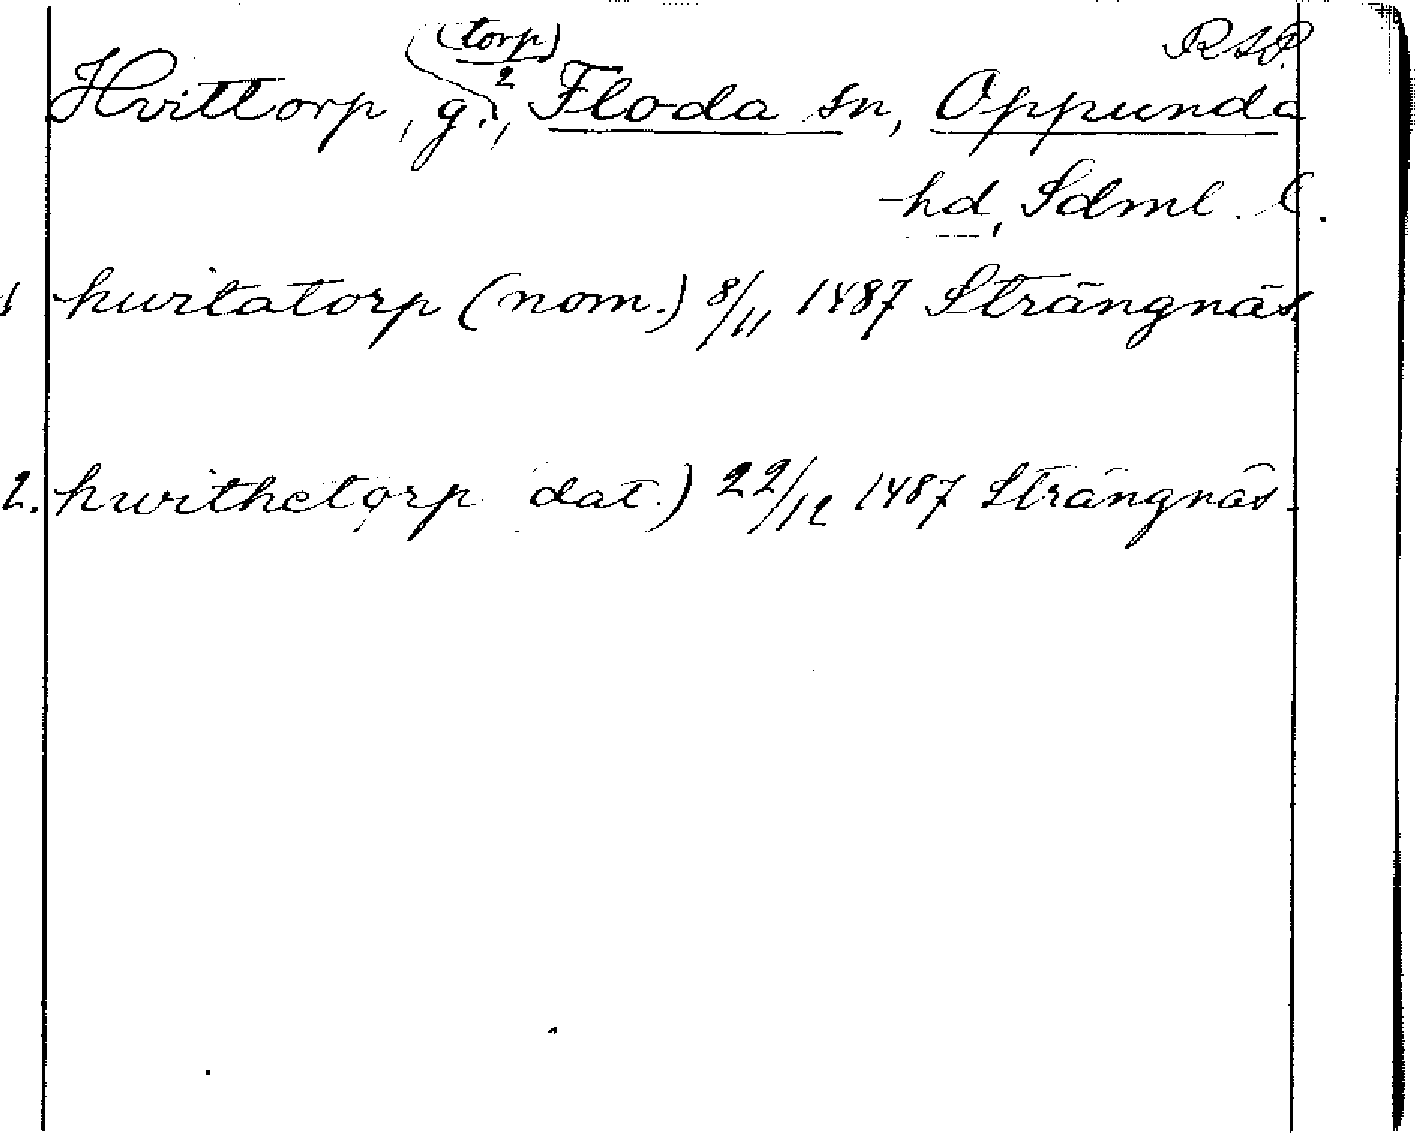 (torp) RSD.
2
Hvittorp, g., Floda sn, Oppunda
-hd, Sdml. C.
1 hvitatorp (nom.) 8/11 1487 Strängnäs
2. hwithetorp dat.) 22/12 1487 Strängnäs.